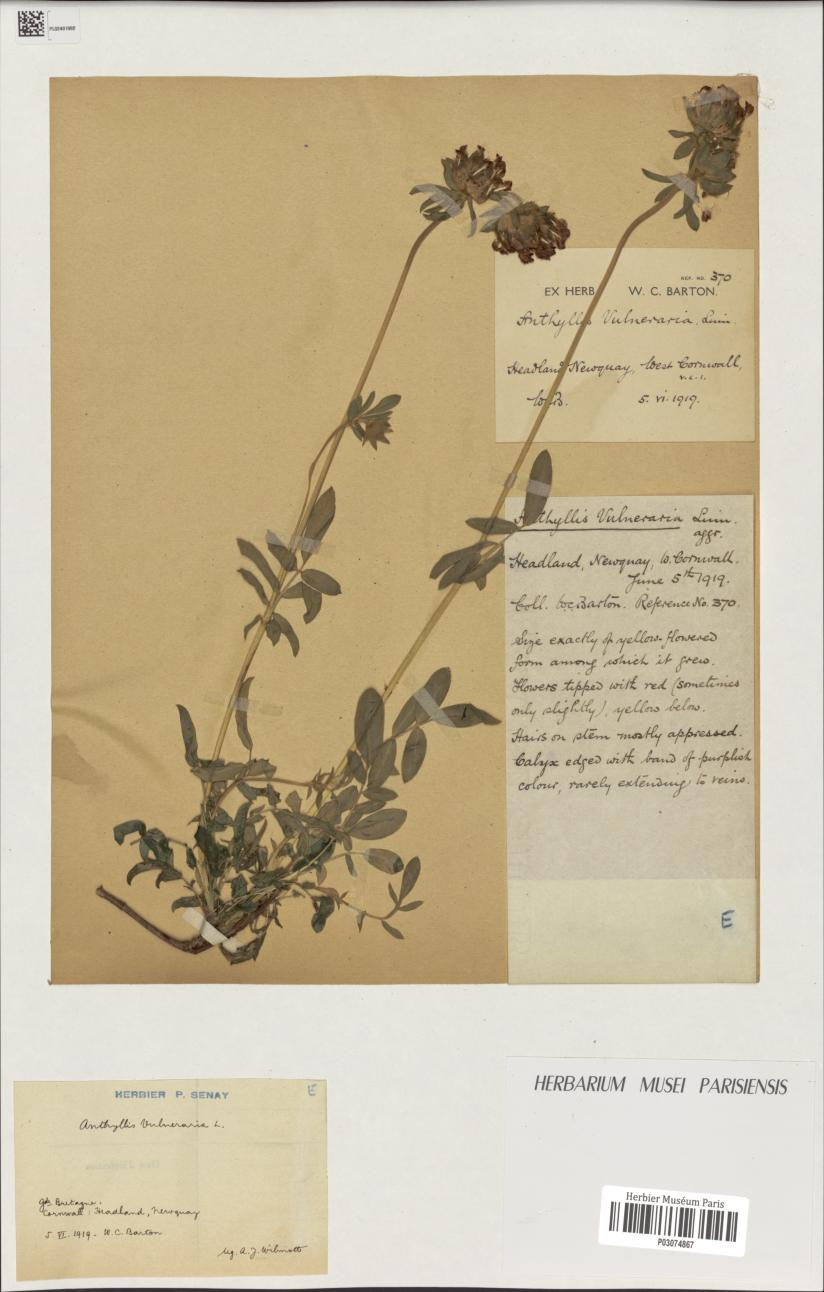 REF. NO. 370
EX HERB. W. C. BARTON.
Anthyllis Vulneraria, Linn.
Headland Newquay, West Cornwall,
v.c.1.
5. vi. 1919.
Anthyllis Vulneraria Linn.
aggr.
Headland, Newquay, W. Cornwall.
June 5th 1919.
Coll. W.C. Barton. Reference No. 370.
Size exactly of yellow-flowered
form among which it grew.
Flowers tipped with red (sometimes
only slightly), yellow below.
Hairs on stem mostly appressed.
Calyx edged with band of purplish
colour, rarely extending to veins.
E
HERBIER P. SENAY E
Anthyllis Vulneraria L.
Gde Bretagne:
Cornwall: Headland, Newquay
5. VI. 1919 - W. C. Barton
Lég. A. J. Wilmott
HERBARIUM MUSEI PARISIENSIS
Herbier Muséum Paris
P03074867